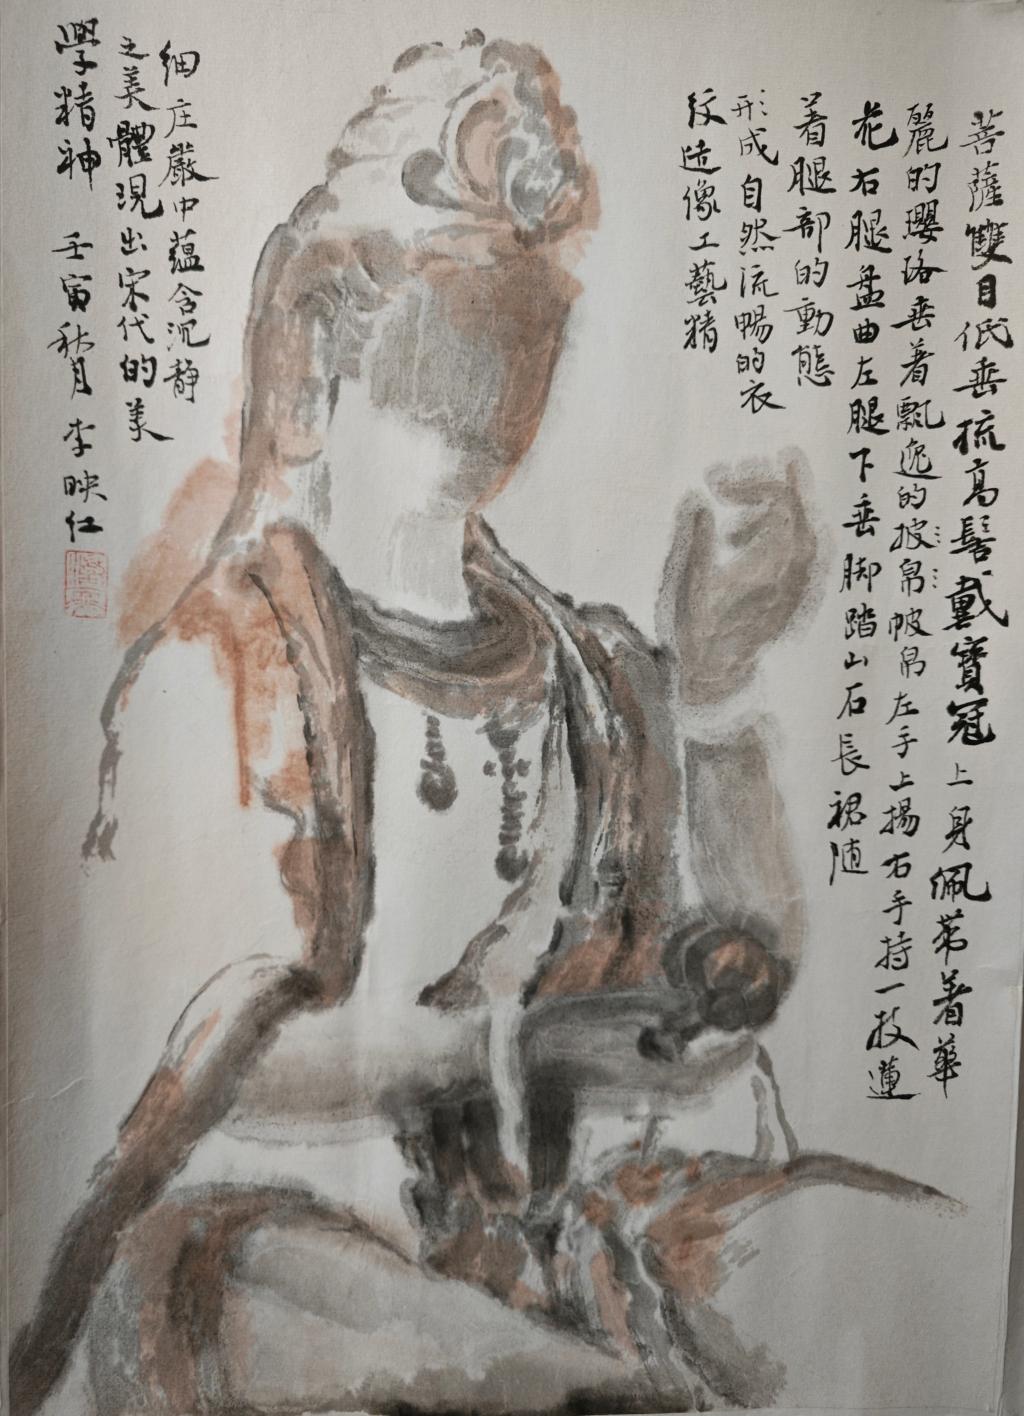 菩薩雙目低垂梳高髻戴寶冠上身佩帶着華
麗的瓔珞垂着飄逸的披帛帔帛左手上揚右手持一枝蓮
花右腿盤曲左腿下垂脚踏山石長裙随
着腿部的動態
形成自然流暢的衣
紋造像工藝精
細庄嚴中蕴含沉静
之美體現出宋代的美
學精神 壬寅秋月 李映仁